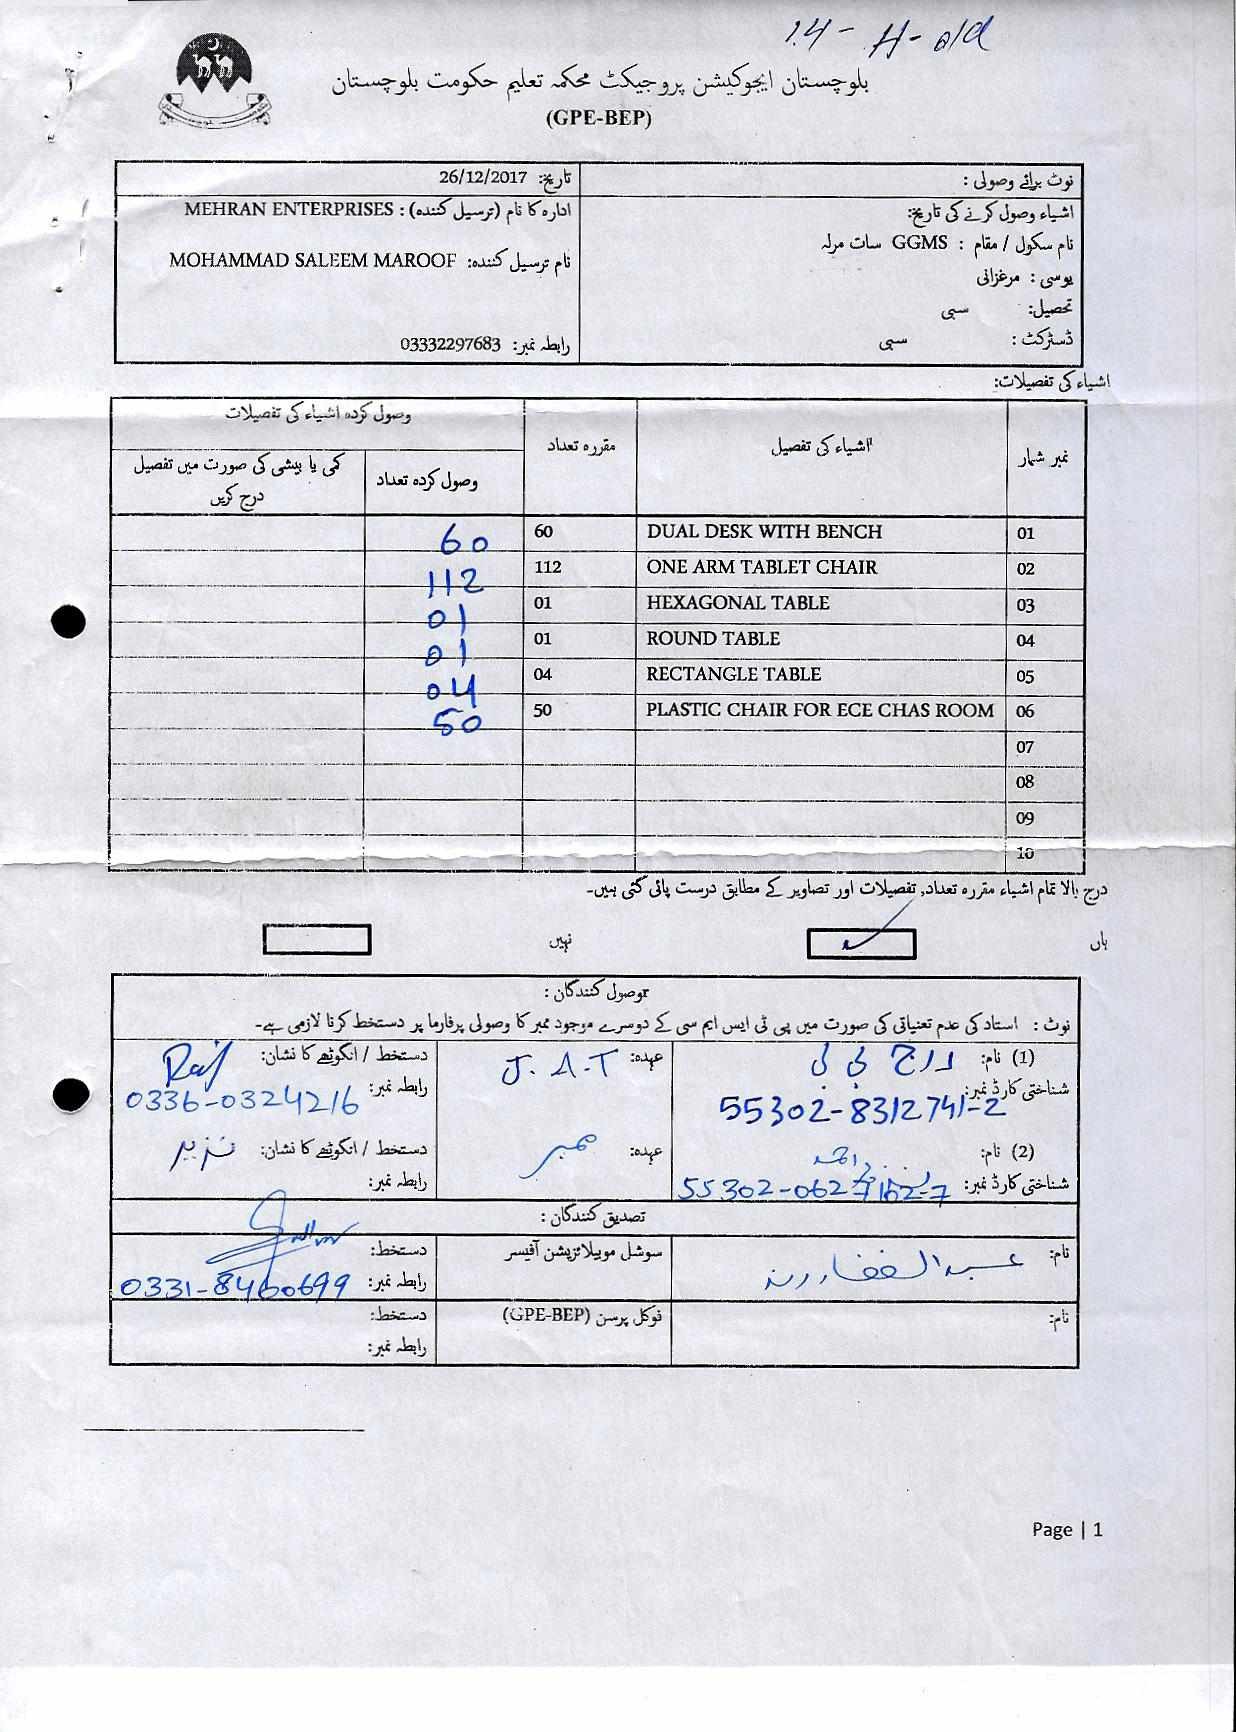 14-H-old
بلوچستان ایجوکیشن پروجیکٹ محکمہ تعلیم حکومت بلوچستان
(GPE-BEP)
نوٹ برائے وصولی :
اشیاء وصول کرنے کی تاریخ:
نام سکول / مقام : GGMS سات مرلہ
یوسی : مرغزانی
تحصیل: سبی
ڈسٹرکٹ : سبی
تاریخ: 26/12/2017
ادارہ کا نام (ترسیل کنندہ) : MEHRAN ENTERPRISES
نام ترسیل کنندہ: MOHAMMAD SALEEM MAROOF
رابطہ نمبر: 03332297683
اشیاء کی تفصیلات:
نمبر شمار اشیاء کی تفصیل مقررہ تعداد وصول کردہ اشیاء کی تفصیلات
وصول کردہ تعداد کمی یا بیشی کی صورت میں تفصیل درج کریں
01 DUAL DESK WITH BENCH 60 60
02 ONE ARM TABLET CHAIR 112 112
03 HEXAGONAL TABLE 01 01
04 ROUND TABLE 01 01
05 RECTANGLE TABLE 04 04
06 PLASTIC CHAIR FOR ECE CHAS ROOM 50 50
07
08
09
10
درج بالا تمام اشیاء مقررہ تعداد, تفصیلات اور تصاویر کے مطابق درست پائی گئی ہیں۔
ہاں نہیں
وصول کنندگان :
نوٹ : استاد کی عدم تعنیاتی کی صورت میں پی ٹی ایس ایم سی کے دوسرے موجود ممبر کا وصولی پرفارما پر دستخط کرنا لازمی ہے۔
(1) نام: راج بی بی عہدہ: J.A.T دستخط / انگوٹھے کا نشان: Raj
شناختی کارڈ نمبر: 55302-8312741-2 رابطہ نمبر: 0336-0324216
(2) نام: عہدہ: ممبر دستخط / انگوٹھے کا نشان: نزیر
شناختی کارڈ نمبر: رابطہ نمبر:
تصدیق کنندگان :
نام: عبدالغفار رند سوشل موبیلائزیشن آفیسر دستخط:
رابطہ نمبر: 0331-8460699
نام: فوکل پرسن (GPE-BEP) دستخط:
رابطہ نمبر:
Page | 1